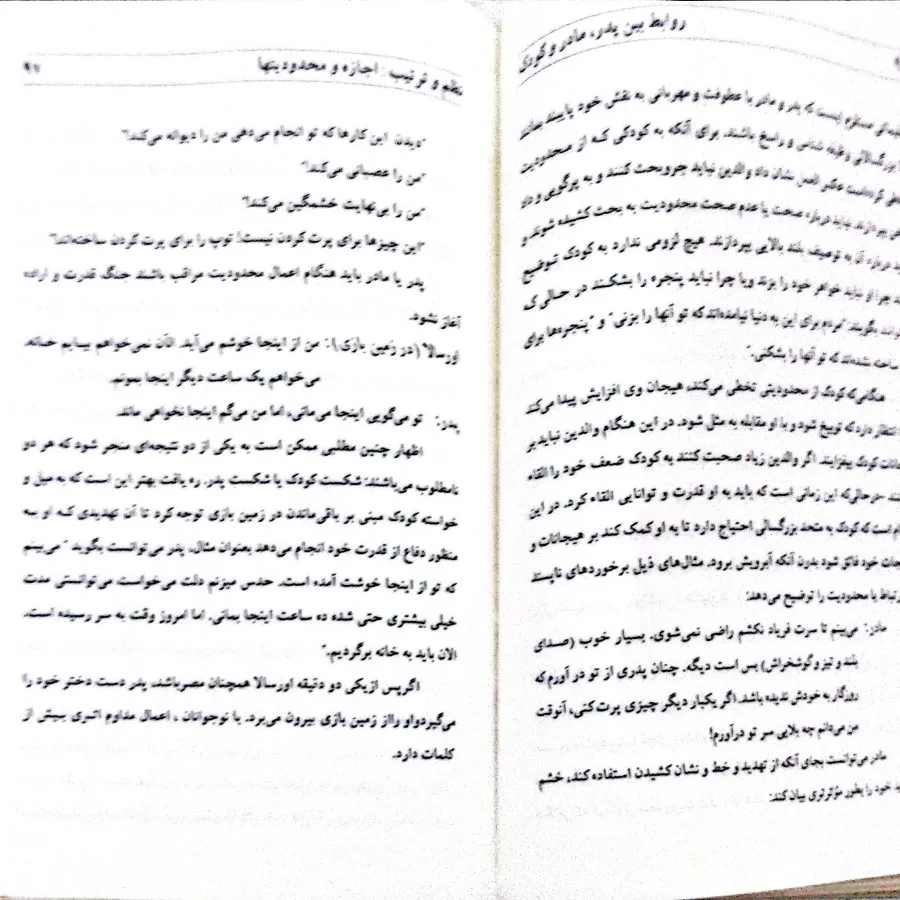 روابط بین پدر، مادر و کودک
مستلزم اینست که پدر و مادر با عطوفت و مهربانی به نقش خود پایبند بمانند
بزرگسالانی وظیفه شناس و راسخ باشند. برای آنکه به کودکی که از محدودیت
عکس العمل نشان داد والدین نباید جروبحث کنند و به پرگویی و
بپردازند. نباید درباره صحت یا عدم صحت محدودیت به بحث کشیده شوند و
درباره آن به توصیف بلند بالایی بپردازند. هیچ لزومی ندارد به کودک توضیح
چرا او نباید خواهر خود را بزند ویا چرا نباید پنجره را بشکند در حالی که
بگویند: "مردم برای این به دنیا نیامده‌اند که تو آنها را بزنی" و "پنجره‌ها برای
ساخته نشده‌اند که تو آنها را بشکنی."
هنگامی‌که کودک از محدودیتی تخطی می‌کند، هیجان وی افزایش پیدا می‌کند
انتظار دارد که توبیخ شود و با او مقابله به مثل شود. در این هنگام والدین نباید بر
کودک بیفزایند. اگر والدین زیاد صحبت کنند به کودک ضعف خود را القاء
درحالی‌که این زمانی است که باید به او قدرت و توانایی القاء کرد. در این
است که کودک به متحد بزرگسالی احتیاج دارد تا به او کمک کند بر هیجانات و
خود فائق شود بدون آنکه آبرویش برود. مثال‌های ذیل برخوردهای ناپسند
با محدودیت را توضیح می‌دهد:
مادر: می‌بینم تا سرت فریاد نکشم راضی نمی‌شوی. بسیار خوب (صدای
بلند و تیز و گوشخراش) بس است دیگه. چنان پدری از تو در آورم که
روزگار به خودش ندیده باشد. اگر یکبار دیگر چیزی پرت کنی، آنوقت
من می‌دانم چه بلایی سر تو درآورم!
مادر می‌توانست بجای آنکه از تهدید و خط و نشان کشیدن استفاده کند، خشم
خود را بطور مؤثرتری بیان کند:
نظم و ترتیب : اجازه و محدودیتها ۹۷
"دیدن این کارها که تو انجام می‌دهی من را دیوانه می‌کند!"
"من را عصبانی می‌کند!"
"من را بی‌نهایت خشمگین می‌کند!"
"این چیزها برای پرت کردن نیست! توپ را برای پرت کردن ساخته‌اند!"
پدر یا مادر باید هنگام اعمال محدودیت مراقب باشند جنگ قدرت و اراده
آغاز نشود.
اورسالا (در زمین بازی): من از اینجا خوشم می‌آید. الآن نمی‌خواهم بیایم خانه.
می‌خواهم یک ساعت دیگر اینجا بمونم.
پدر: تو می‌گویی اینجا می‌مانی، اما من می‌گم اینجا نخواهی ماند.
اظهار چنین مطلبی ممکن است به یکی از دو نتیجه‌ای منجر شود که هر دو
نامطلوب می‌باشند: شکست کودک یا شکست پدر. ره یافت بهتر این است که به میل و
خواسته کودک مبنی بر باقی‌ماندن در زمین بازی توجه کرد تا آن تهدیدی که او به
منظور دفاع از قدرت خود انجام می‌دهد بعنوان مثال، پدر می‌توانست بگوید "می‌بینم
که تو از اینجا خوشت آمده است. حدس میزنم دلت می‌خواست می‌توانستی مدت
خیلی بیشتری حتی شده ده ساعت اینجا بمانی. اما امروز وقت به سر رسیده است.
الان باید به خانه برگردیم."
اگرپس ازیکی دو دقیقه اورسالا همچنان مصرباشد، پدر دست دختر خود را
می‌گیردواو رااز زمین بازی بیرون می‌برد. با نوجوانان ، اعمال مداوم اثری بیش از
کلمات دارد.